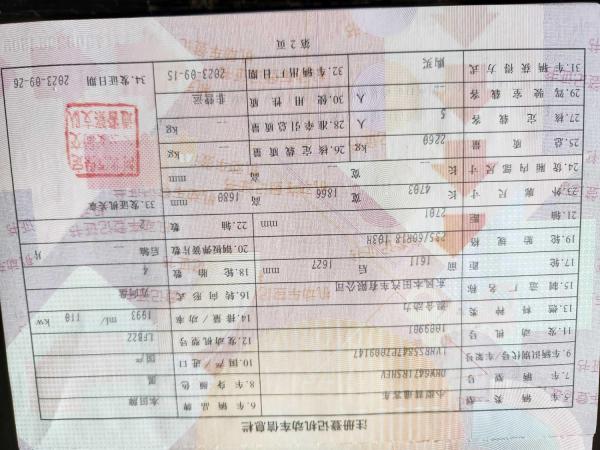 注册登记机动车信息栏
5.车辆类型 小型普通客车 6.车辆品牌 本田牌
7.车辆型号 8.车身颜色 黑
9.车辆识别代号/车架号 10.国产/进口 国产
11.发动机号 1009901 12.发动机型号 LFB22
13.燃料种类 混合动力 14.排量/功率 1993 ml/ 110 kw
15.制造厂名称 东风本田汽车有限公司 16.转向形式 方向盘
17.轮距 前 1611 后 1627 mm 18.轮胎数 4
19.轮胎规格 235/60R18 103H 20.钢板弹簧片数 后轴 -- 片
21.轴距 2701 mm 22.轴数 2
23.外廓尺寸 长 4703 宽 1866 高 1680 mm 33.发证机关章
24.货厢内部尺寸 长 -- 宽 -- 高 -- mm
25.总质量 2260 kg 26.核定载质量 -- kg
27.核定载客 5 人 28.准牵引总质量 -- kg
29.驾驶室载客 -- 人 30.使用性质 非营运
31.车辆获得方式 购买 32.车辆出厂日期 2023-09-15 34.发证日期 2023-09-26
第 2 页